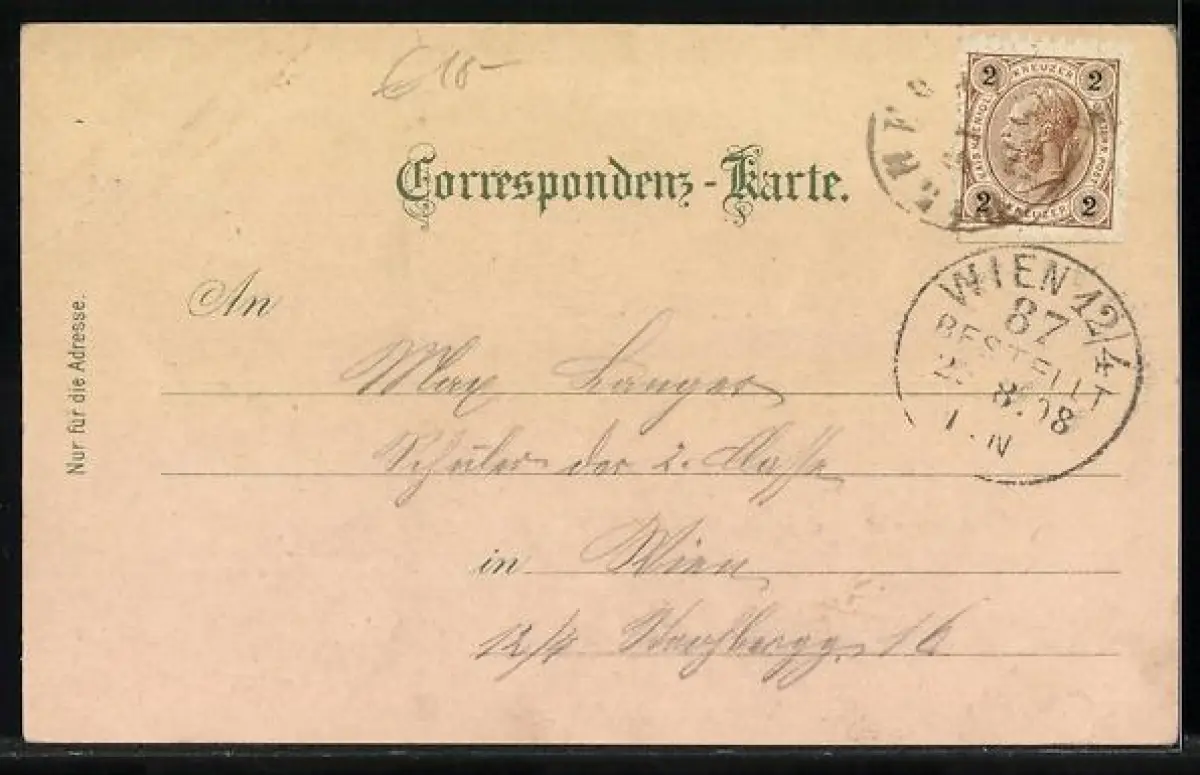 € 18-
Correspondenz-Karte.
2 KREUZER 2
2 KREUZER 2
WIEN 12/4
87
BESTELLT
2 8.98
1.N
An
Max Langer
Schüler der 2. Classe
in Wien
12/4 16
Nur für die Adresse.